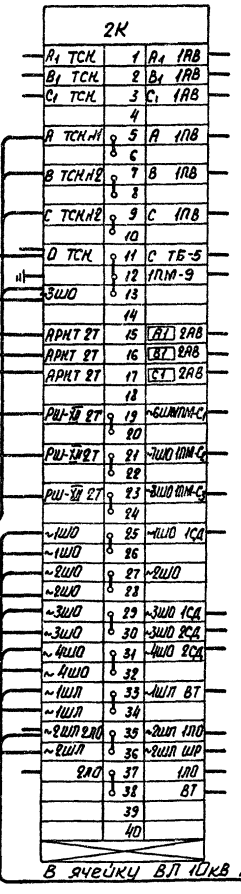 2К
А₁ ТСН 1 А₁ 1АВ
В₁ ТСН 2 В₁ 1АВ
С₁ ТСН 3 С₁ 1АВ
4
А ТСН1 5 А 1ПВ
6
В ТСН2 7 В 1ПВ
8
С ТСН2 9 С 1ПВ
10
О ТСН 11 С ТБ-5
12 1ПМ-9
~3ШО 13
14
АРНТ 2Т 15 А1 2АВ
АРНТ 2Т 16 В1 2АВ
АРНТ 2Т 17 С1 2АВ
18
РШ-XII 2Т 19
20
РШ-XII 2Т 21
22
РШ-XII 2Т 23
24
~1ШО 25 ~1ШО 1СД
~1ШО 26
~2ШО 27 ~2ШО
~2ШО 28
~3ШО 29 ~3ШО 1СД
~3ШО 30 ~3ШО 2СД
~4ШО 31 ~4ШО 2СД
~4ШО 32
~1ШЛ 33 ~1ШЛ ВТ
~1ШЛ 34
~2ШЛ 2ЛО 35 ~2ШЛ 1ЛО
~2ШЛ 36 ~2ШЛ ШР
2ЛО 37 1ЛО
38 ВТ
39
40
В ячейку ВЛ 10кВ